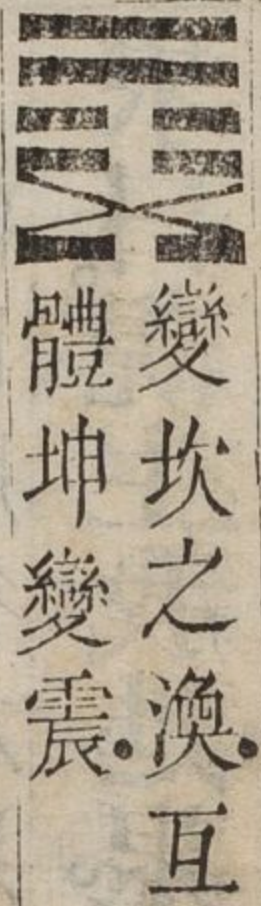 變坎之渙。互
體坤變震。